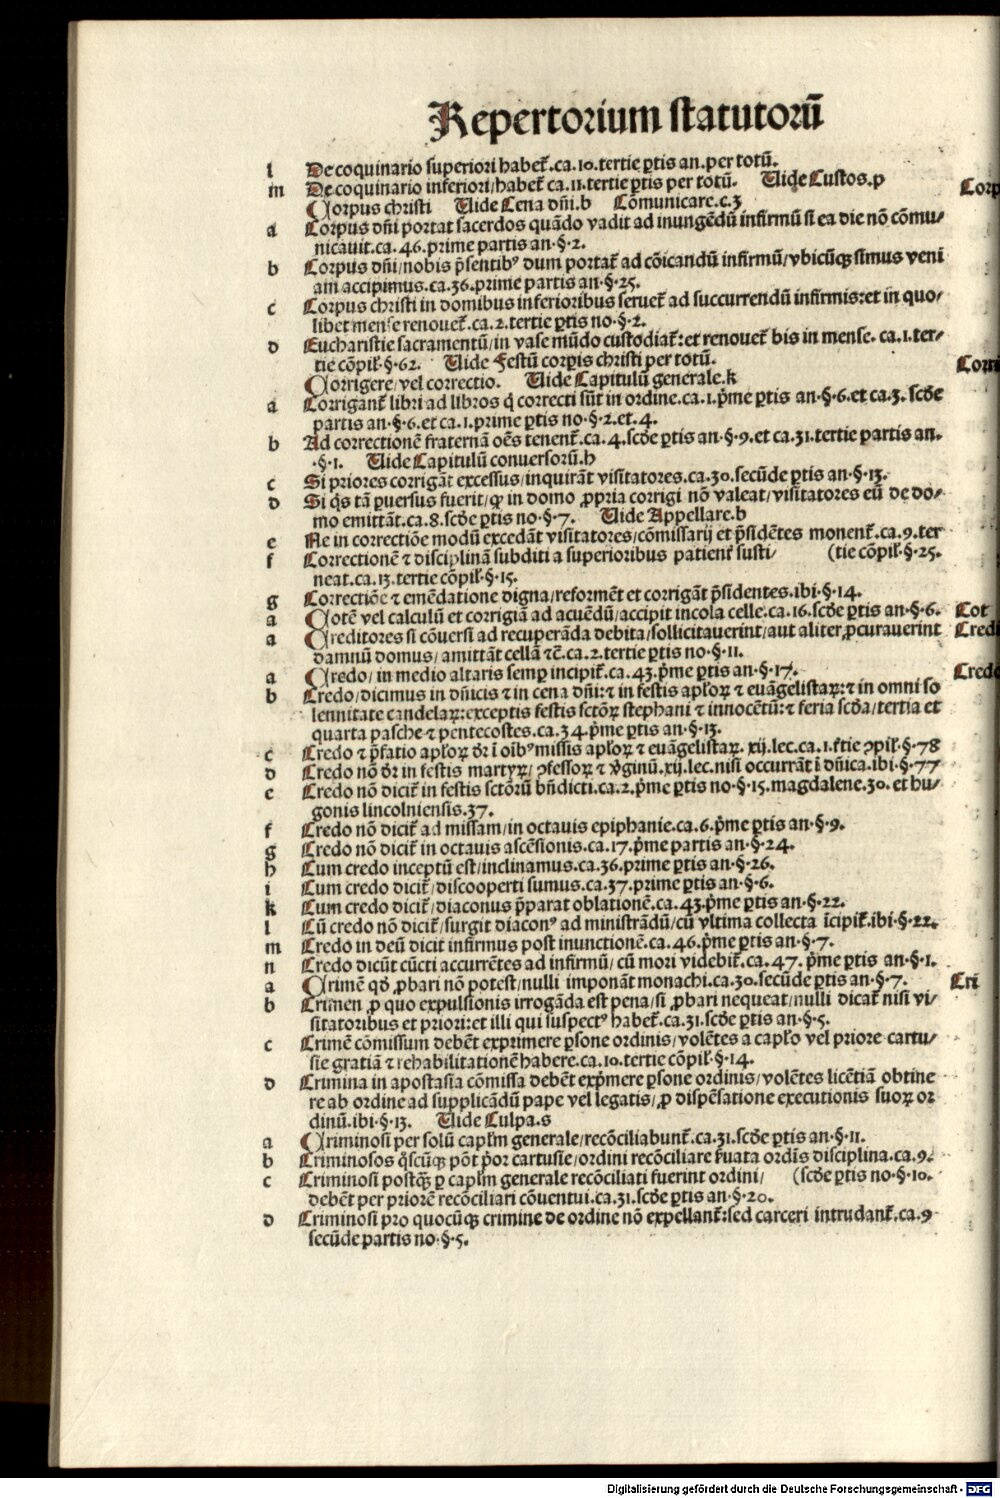 Repertorium statutorū
l De coquinario superiori habet᷑.ca.10.tertie ꝑtis an.per totū.
m De coquinario inferiori/habet᷑ ca.11.tertie ꝑtis per totū. Uide Custos.p
Corpus christi Uide Cena dn̄i.b Cōmunicare.c.3
a Corpus dn̄i portat sacerdos quādo vadit ad inungēdū infirmū si ea die nō cōmu/
nicauit.ca.46.prime partis an.§.2.
b Corpus dn̄i/nobis p̄sentibꝰ dum portat᷑ ad cōicandū infirmū/vbicūqꝫ simus veni
am accipimus.ca.36.prime partis an.§.25.
c Corpus christi in domibus inferioribus seruet᷑ ad succurrendū infirmis:et in quo/
libet mense renouet᷑.ca.2.tertie ꝑtis no.§.2.
d Eucharistie sacramentū/in vase mūdo custodiat᷑:et renouet᷑ bis in mense. ca.1.ter/
tie cōpil᷑.§.62. Uide Festū corꝑis christi per totū.
Corrigere/vel correctio. Uide Capitulū generale.k
a Corrigant᷑ libri ad libros q̇ correcti sūt in ordine.ca.1.p̄me ꝑtis an.§.6.et ca.3.scd̄e
partis an.§.6.et ca.1.prime ꝑtis no.§.2.et.4.
b Ad correctionē fraternā oēs tenent᷑.ca.4.scd̄e ꝑtis an.§.9.et ca.31.tertie partis an.
.§.1. Uide Capitulū conuersorū.h
c Si priores corrigāt excessus/inquirāt visitatores.ca.30.secūde ꝑtis an.§.13.
d Si q̇s tā ꝑuersus fuerit/ꝙ in domo ꝓpria corrigi nō valeat/visitatores eū de do/
mo emittāt.ca.8.scd̄e ꝑtis no.§.7. Uide Appellare.b
e Ne in correctiōe modū excedāt visitatores/cōmissarij et p̄sidētes monent᷑.ca.9.ter
f Correctionē ⁊ disciplinā subditi a superioribus patient᷑ susti/ (tie cōpil᷑.§.25.
neat.ca.13.tertie cōpil᷑.§.15.
g Correctiōe ⁊ emēdatione digna/reformēt et corrigāt p̄sidentes.ibi.§.14.
a Cotē vel calculū et corrigiā ad acuēdū/accipit incola celle.ca.16.scd̄e ꝑtis an.§.6.
a Creditores si cōuersi ad recuperāda debita/sollicitauerint/aut aliter ꝓcurauerint
damnū domus/amittāt cellā ⁊c̄.ca.2.tertie ꝑtis no.§.11.
a Credo/in medio altaris semꝑ incipit᷑.ca.43.p̄me ꝑtis an.§.17.
b Credo/dicimus in dn̄icis ⁊ in cena dn̄i:⁊ in festis apl̄oꝝ ⁊ euāgelistaꝝ:⁊ in omni so
lennitate candelaꝝ:exceptis festis sctōꝝ stephani ⁊ innocētū:⁊ feria scd̄a/tertia et
quarta pasche ⁊ pentecostes.ca.34.p̄me ꝑtis an.§.13.
c Credo ⁊ p̄fatio apl̄oꝝ d᷑r ī oībꝰ missis apl̄oꝝ ⁊ euāgelistaꝝ. xij.lec.ca.1.t᷑tie ꝯpil᷑.§.78
d Credo nō d᷑r in festis martyꝝ/ ꝯfessoꝝ ⁊ v̄ginū.xij.lec.nisi occurrāt ī dn̄ica.ibi.§.77
e Credo nō dicit᷑ in festis sctōrū bn̄dicti.ca.2.p̄me ꝑtis no.§.15.magdalene.30. et hu/
gonis lincolniensis.37.
f Credo nō dicit᷑ ad missam/in octauis epiphanie.ca.6.p̄me ꝑtis an.§.9.
g Credo nō dicit᷑ in octauis ascēsionis.ca.17.p̄me partis an.§.24.
h Cum credo inceptū est/inclinamus.ca.36.prime ꝑtis an.§.26.
i Cum credo dicit᷑/discooperti sumus.ca.37.prime ꝑtis an.§.6.
k Cum credo dicit᷑/diaconus p̄parat oblationē.ca.43.p̄me ꝑtis an.§.22.
l Cū credo nō dicit᷑/surgit diaconꝰ ad ministrādū/cū vltima collecta īcipit᷑.ibi.§.22.
m Credo in deū dicit infirmus post inunctionē.ca.46.p̄me ꝑtis an.§.7.
n Credo dicūt cūcti accurrētes ad infirmū/ cū mori videbit᷑.ca.47. p̄me ꝑtis an.§.1.
a Crimē qd̄ ꝓbari nō potest/nulli imponāt monachi.ca.30.secūde ꝑtis an.§.7.
b Crimen ꝓ quo expulsionis irrogāda est pena/si ꝓbari nequeat/nulli dicat᷑ nisi vi/
sitatoribus et priori:et illi qui suspectꝰ habet᷑.ca.31.scd̄e ꝑtis an.§.5.
c Crimē cōmissum debēt exprimere ꝑsone ordinis/volētes a capl̄o vel priore cartu/
sie gratiā ⁊ rehabilitationē habere.ca.10.tertie cōpil᷑.§.14.
d Crimina in apostasia cōmissa debēt exp̄mere ꝑsone ordinis/volētes licētiā obtine
re ab ordine ad supplicādū pape vel legatis/ꝓ dispēsatione executionis suoꝝ or
dinū.ibi.§.13. Uide Culpa.s
a Criminosi per solū capl̄m generale/recōciliabunt᷑.ca.31.scd̄e ꝑtis an.§.11.
b Criminosos q̇scūqꝫ pōt p̄or cartusie/ordini recōciliare s̄uata ordīs disciplina.ca.9.
c Criminosi postq̄ꝫ ꝑ capl̄m generale recōciliati fuerint ordini/ (scd̄e ꝑtis no.§.10.
debēt per priorē recōciliari cōuentui.ca.31.scd̄e ꝑtis an.§.20.
d Criminosi pro quocūqꝫ crimine de ordine nō expellant᷑:sed carceri intrudant᷑.ca.9
secūde partis no.§.5.
Corp
Corri
Cot
Credi
Credo
Cri
Digitalisierung gefördert durch die Deutsche Forschungsgemeinschaft - DFG